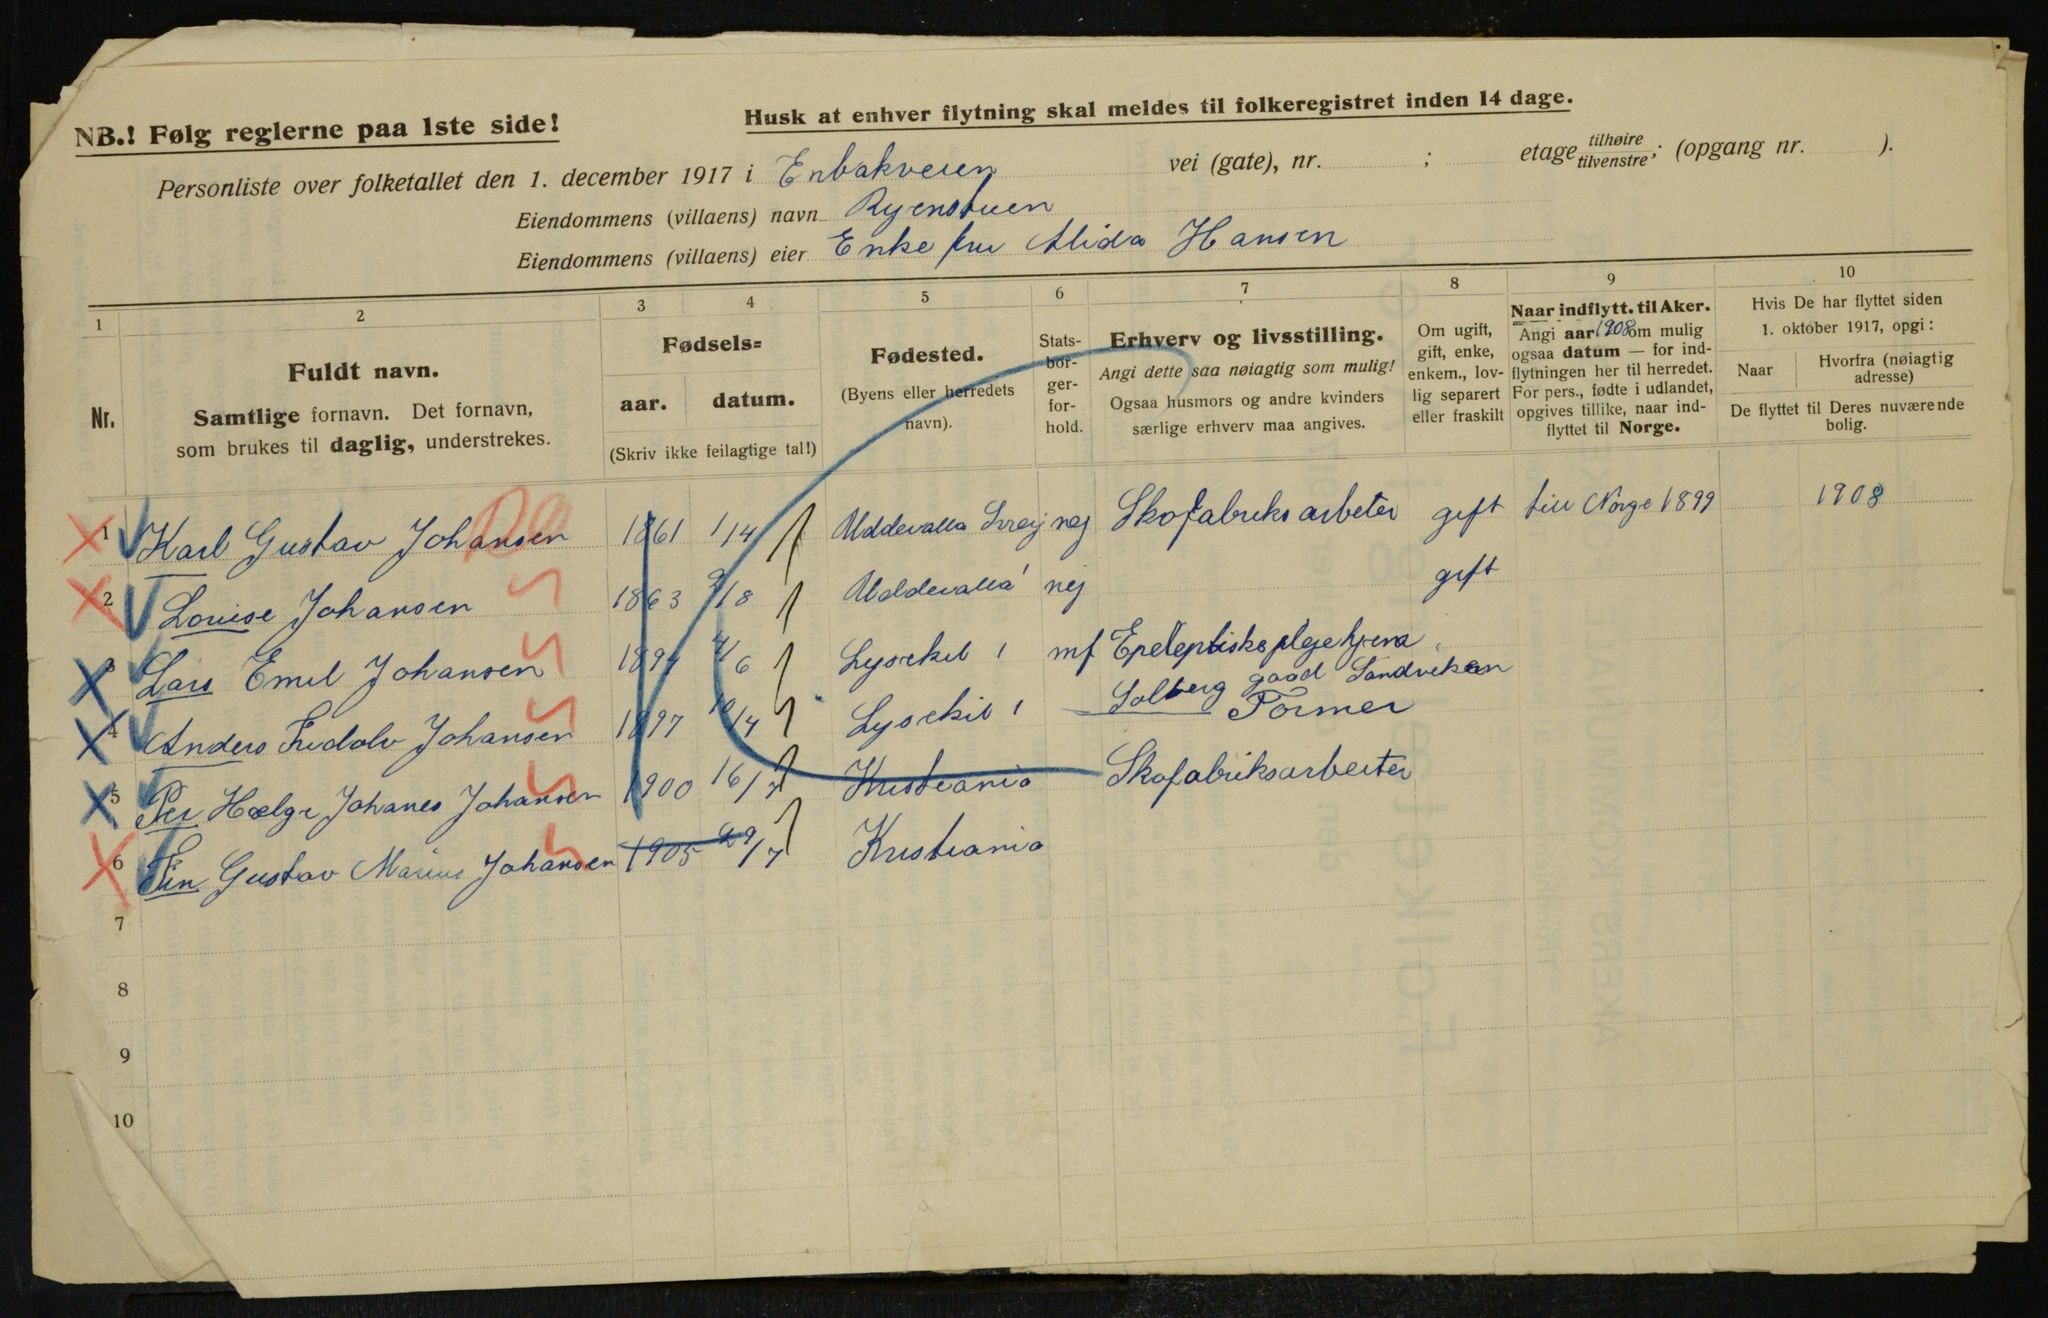 NB.! Følg reglerne paa 1ste side!
Husk at enhver flytning skal meldes til folkeregistret inden 14 dage.
Personliste over folketallet den 1. december 1917 i Enbakveien vei (gate), nr. ; etage tilhøire tilvenstre; (opgang nr. ).
Eiendommens (villaens) navn Ryenstuen
Eiendommens (villaens) eier Enke fru Alida Hansen
1 2 3 4 5 6 7 8 9 10
Nr.
Fuldt navn.
Samtlige fornavn. Det fornavn,
som brukes til daglig, understrekes.
Fødsels=
aar. datum.
(Skriv ikke feilagtige tal!)
Fødested.
(Byens eller herredets
navn).
Stats-
bor-
ger-
for-
hold.
Erhverv og livsstilling.
Angi dette saa nøiagtig som mulig!
Ogsaa husmors og andre kvinders
særlige erhverv maa angives.
Om ugift,
gift, enke,
enkem., lov-
lig separert
eller fraskilt
Naar indflytt. til Aker.
Angi aar 1908 om mulig
ogsaa datum — for ind-
flytningen her til herredet.
For pers., fødte i udlandet,
opgives tillike, naar ind-
flyttet til Norge.
Hvis De har flyttet siden
1. oktober 1917, opgi:
Naar Hvorfra (nøiagtig
adresse)
De flyttet til Deres nuværende
bolig.
1 Karl Gustav Johansen 1861 1/4 Uddevalla nej Skofabriksarbeter gift till Norge 1899 1908
2 Louise Johansen 1863 2/8 Uddevalla nej gift
3 Lars Emil Johansen 1894 4/6 Lysekil Epeleptiske plejehjem
Solberg gaad Sandviken
4 Anders Fridolv Johansen 1897 10/4 Lysekil Former
5 Per Hælge Johanes Johansen 1900 16/7 Kristiania Skofabriksarbeiter
6 Fin Gustav Marius Johansen 1905 29/7 Kristiania
7
8
9
10